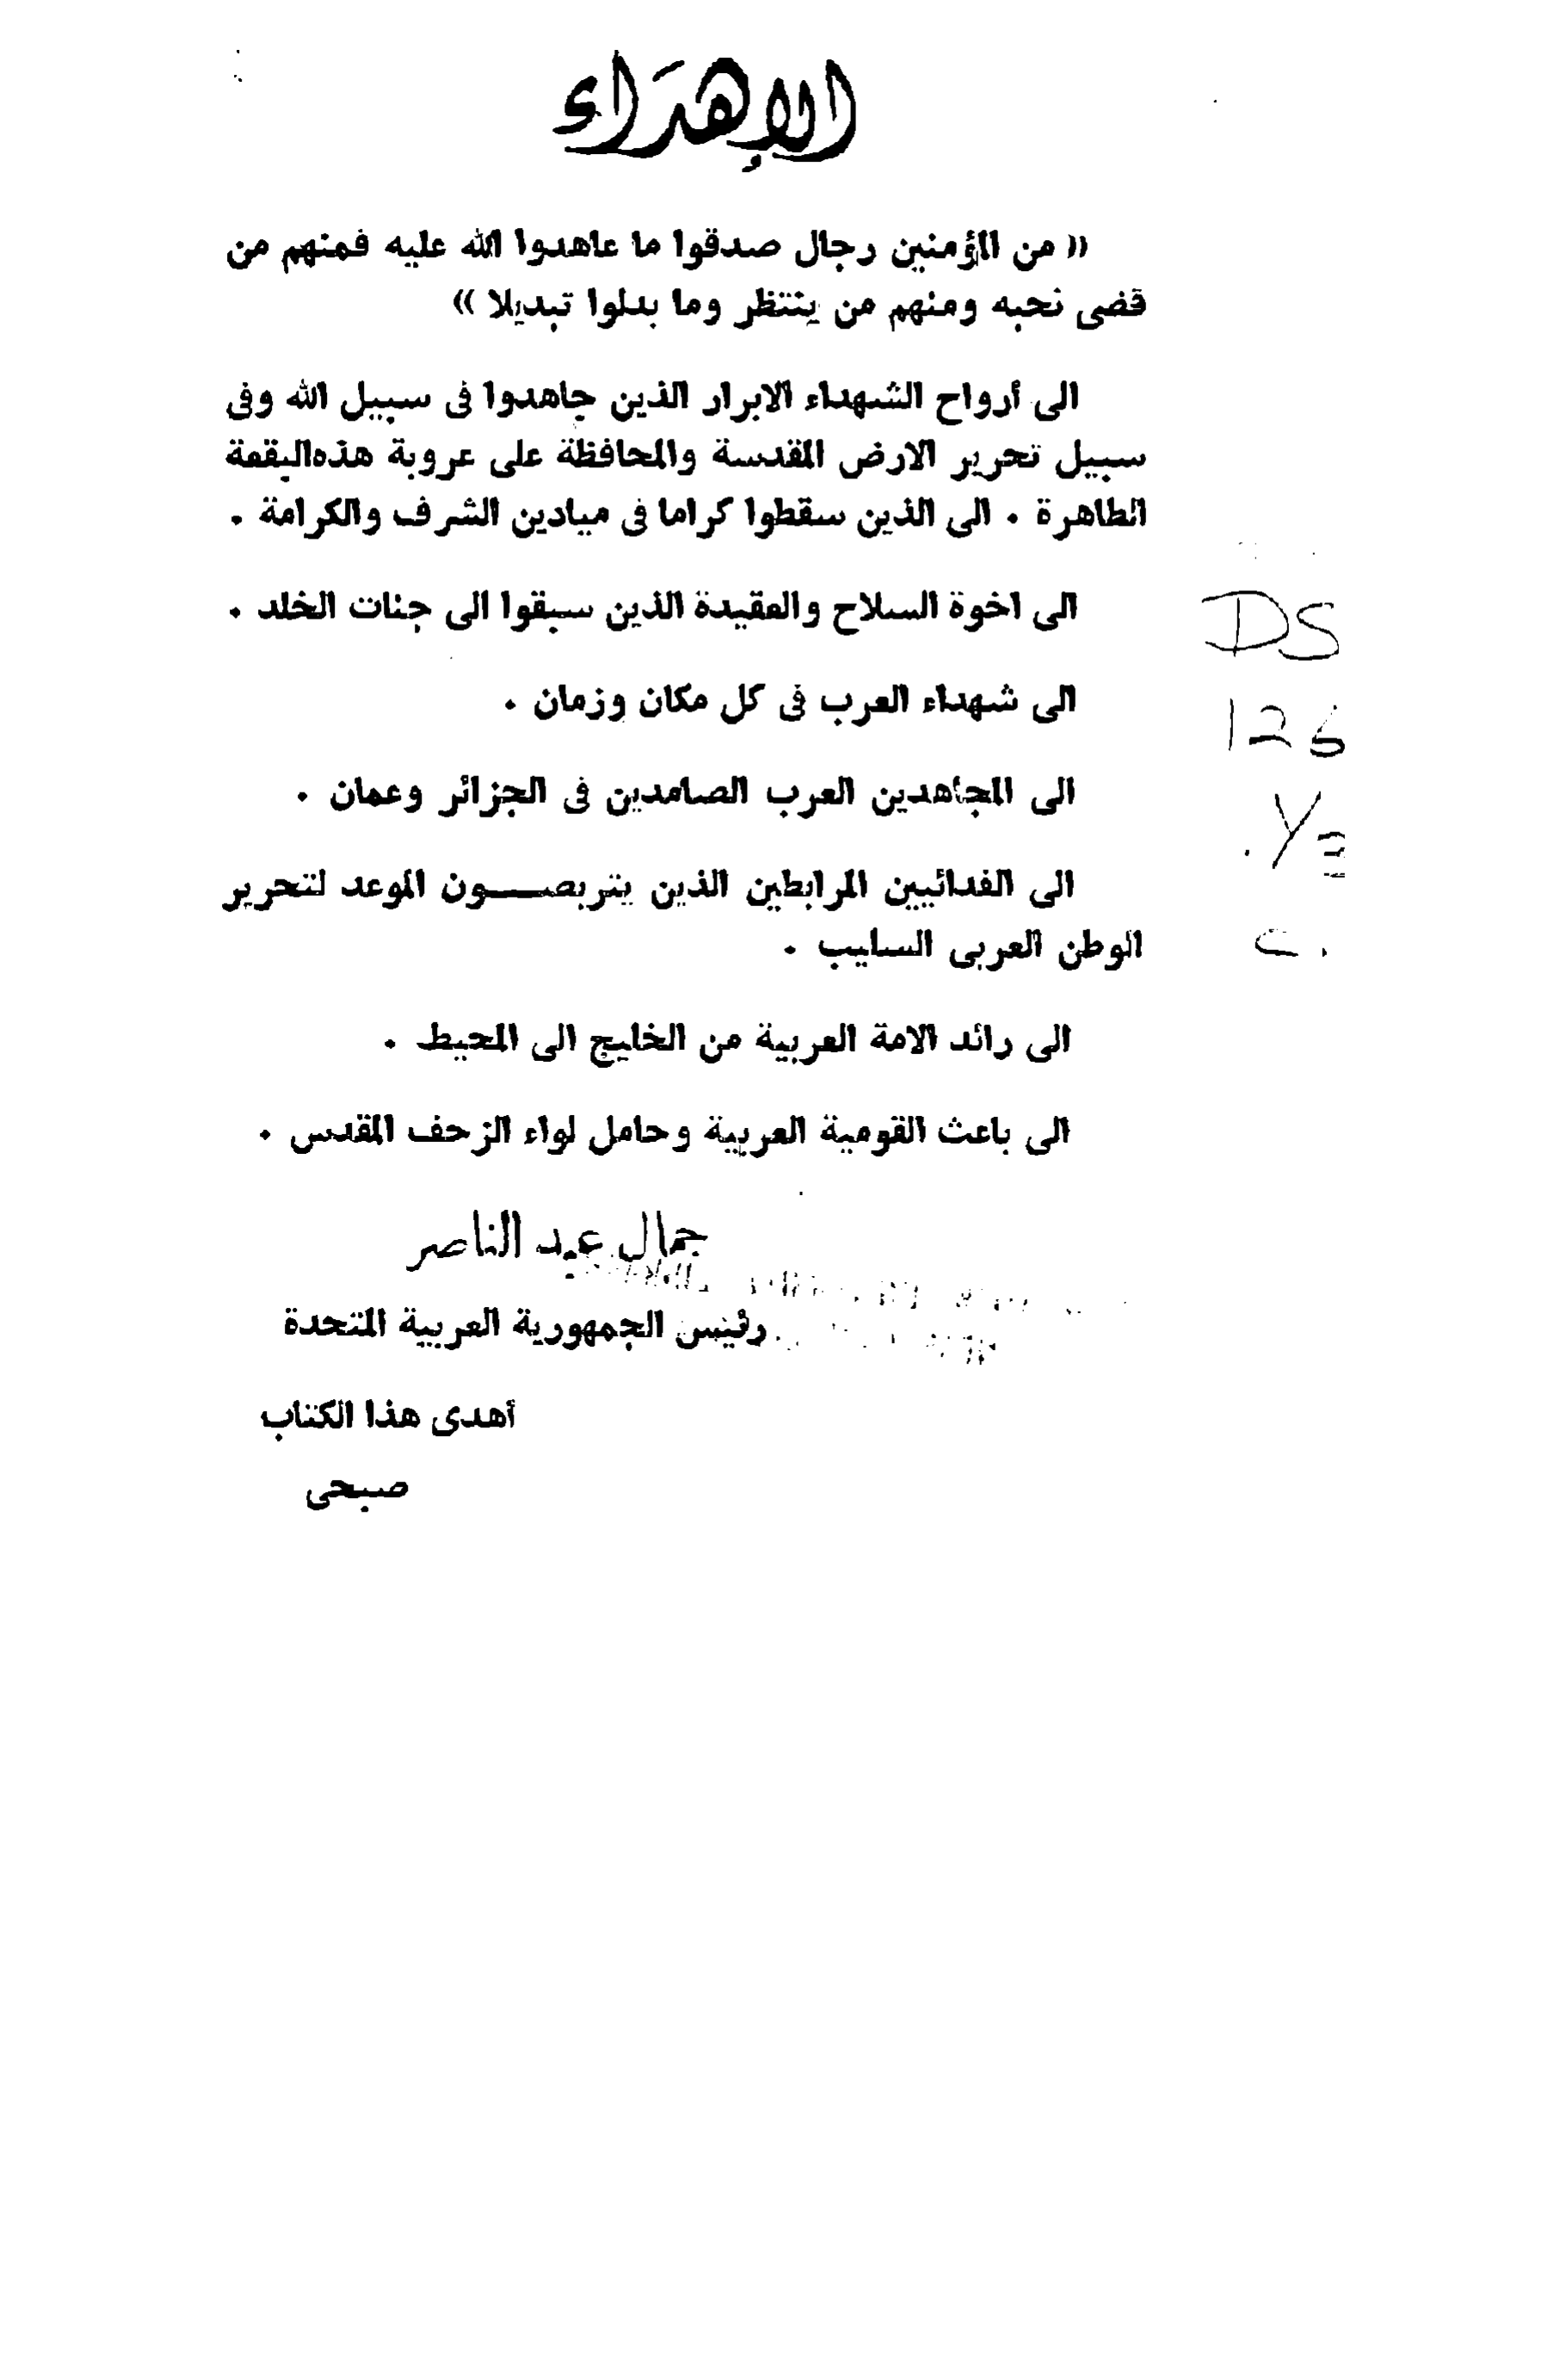 الإهداء
« من المؤمنين رجال صدقوا ما عاهدوا الله عليه فمنهم من
قضى نحبه ومنهم من ينتظر وما بدلوا تبديلا »
الى أرواح الشهداء الابرار الذين جاهدوا فى سبيل الله وفى
سبيل تحرير الارض المقدسة والمحافظة على عروبة هذه البقعة
الطاهرة . الى الذين سقطوا كراما فى ميادين الشرف والكرامة .
الى اخوة السلاح والعقيدة الذين سبقوا الى جنات الخلد .
الى شهداء العرب فى كل مكان وزمان .
الى المجاهدين العرب الصامدين فى الجزائر وعمان .
الى الفدائيين المرابطين الذين يتربصـــون الموعد لتحرير
الوطن العربى السليب .
الى رائد الامة العربية من الخليج الى المحيط .
الى باعث القومية العربية وحامل لواء الزحف المقدس .
جمال عبد الناصر
رئيس الجمهورية العربية المتحدة
أهدى هذا الكتاب
صبحى
DS
126